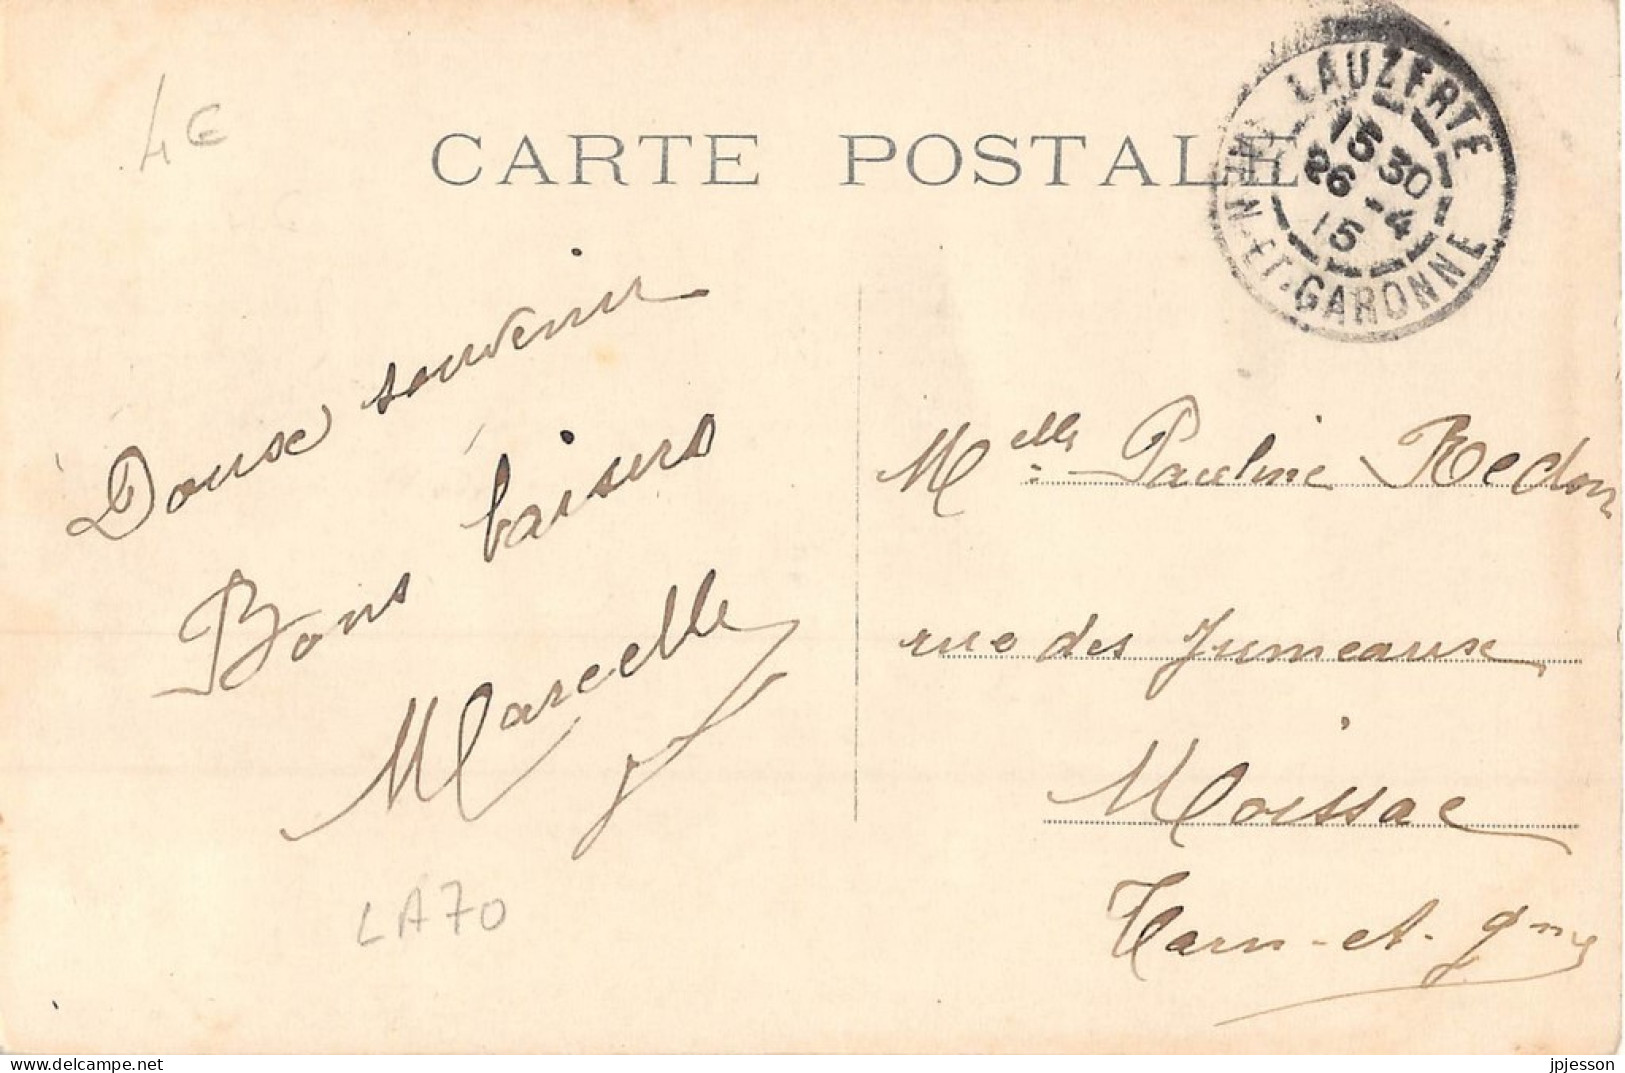 4€
CARTE POSTALE
LAUZERTE
15 30
26 - 4
15
TARN-ET-GARONNE
Doux souvenir
Bons baisers
Marcelle
LA70
Melle Pauline Redon
rue des Jumeaux
Moissac
Tarn-et-Gnne
jpjesson